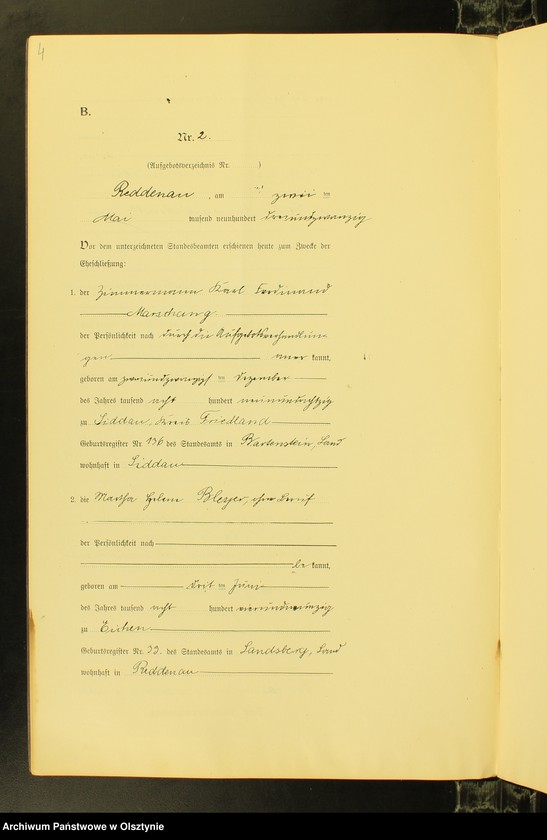 4
B.
Nr. 2.
(Aufgebotsverzeichnis Nr. )
Reddenau, am zwei ten
Mai tausend neunhundert dreiundzwanzig
Vor dem unterzeichneten Standesbeamten erschienen heute zum Zwecke der
Eheschließung:
1. der Zimmermann Karl Ferdinand
Marschang
der Persönlichkeit nach durch die Aufgebotsverhandlun-
gen aner kannt,
geboren am zweiundzwanzigsten Dezember
des Jahres tausend acht hundert neunundachtzig
zu Liddau, Kreis Friedland
Geburtsregister Nr. 136 des Standesamts in Bartenstein, Land
wohnhaft in Liddau
2. die Martha Helene Bleyer, ohne Beruf
der Persönlichkeit nach
be kannt,
geboren am dritten Juni
des Jahres tausend acht hundert vierundneunzig
zu Eichen
Geburtsregister Nr. 33 des Standesamts in Landsberg, Land
wohnhaft in Reddenau
Archiwum Państwowe w Olsztynie